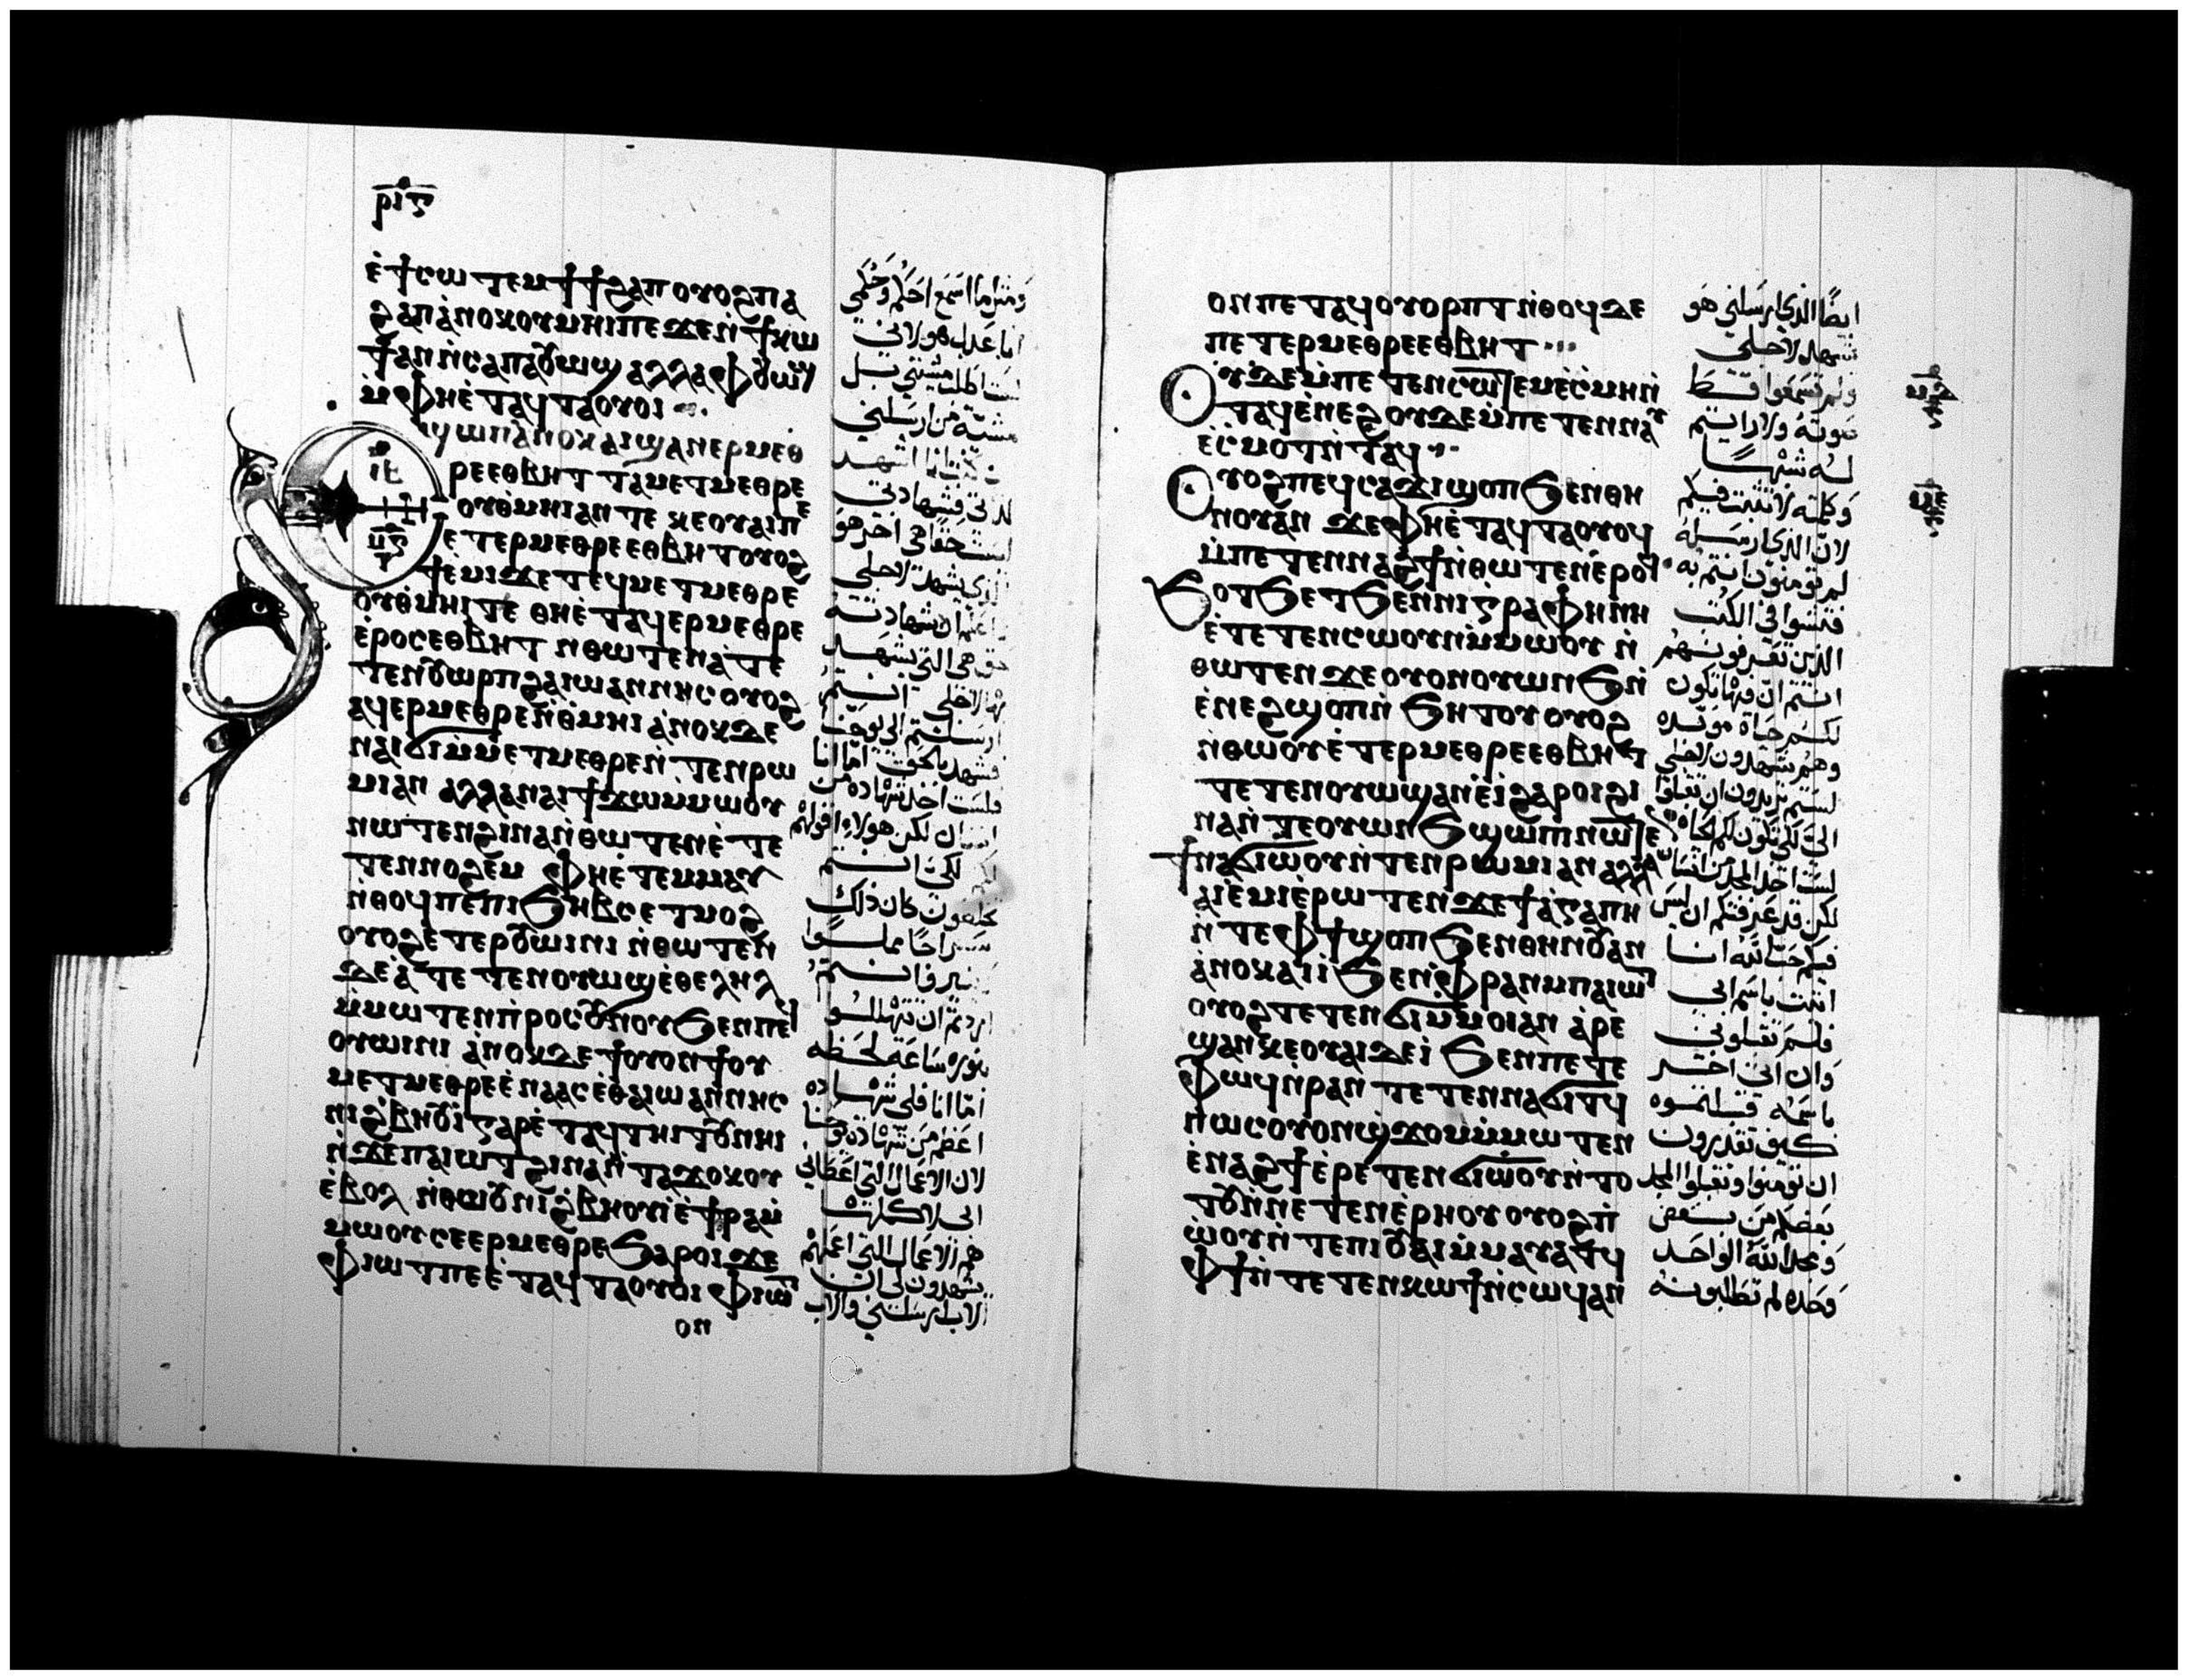 ⲣⲓⲋ
ⲉ̀ϯⲥⲱⲧⲉⲙ ϯϯϩⲁⲡ ⲟⲩⲟϩ ⲡⲁ
ϩⲁⲡ ⲁ̀ⲛⲟⲕ ⲟⲩⲙⲏⲓ ⲡⲉ ϫⲉ ⲛ̀ϯⲕⲱ
ϯ ⲁⲛ ⲛ̀ⲥⲁ ⲡⲁⲟⲩⲱϣ ⲁⲗⲗⲁ ⲫⲟⲩⲱϣ
ⲙ̀ⲫⲏⲉ̀ⲧⲁϥⲧⲁⲟⲩⲟⲓ
ϣⲱⲡ ⲁ̀ⲛⲟⲕ ⲁⲓϣⲁⲛⲉⲣⲙⲉⲑ
ⲣⲉ ⲉⲑⲃⲏⲧ ⲧⲁⲙⲉⲧⲙⲉⲑⲣⲉ
ⲟⲩⲑ̀ⲙⲏⲓ ⲁⲛ ⲧⲉ ⲕⲉⲟⲩⲁⲓ ⲡ
ⲉⲧⲉⲣⲙⲉⲑⲣⲉ ⲉⲑⲃⲏⲧ ⲟⲩⲟϩ
ϯⲉⲙⲓ ϫⲉ ⲧⲉϥⲙⲉⲧⲙⲉⲑⲣⲉ
ⲟⲩⲑ̀ⲙⲏⲓ ⲧⲉ ⲑⲏⲉ̀ⲧⲁϥⲉⲣⲙⲉⲑⲣⲉ
ⲉ̀ⲣⲟⲥ ⲉⲑⲃⲏⲧ ⲛⲑⲱⲧⲉⲛ ⲁ̀ⲧⲉ
ⲧⲉⲛⲟⲩⲱⲣⲡ ϩⲁ ⲓⲱⲁⲛⲛⲏⲥ ⲟⲩⲟϩ
ⲁϥⲉⲣⲙⲉⲑⲣⲉ ⲛ̀ⲑ̀ⲙⲏⲓ ⲁ̀ⲛⲟⲕ ⲇⲉ
ⲛⲁⲓϭⲓ ⲙ̀ⲙⲉⲧⲙⲉⲑⲣⲉ ⲛ̀ⲧⲉⲛ ⲣⲱ
ⲙⲓ ⲁⲛ ⲁⲗⲗⲁ ⲛⲁⲓ ϯϫⲱ ⲙⲙⲱⲟⲩ
ⲛⲱⲧⲉⲛ ϩⲓⲛⲁ ⲛ̀ⲑⲱⲧⲉⲛ ⲉ̀ⲧⲉ
ⲧⲉⲛⲛⲟϩⲉⲙ ⲫⲏⲉ̀ⲧⲉⲙⲙⲁⲩ
ⲛ̀ⲑⲟϥ ⲡⲉ ⲡⲓϧⲏⲃⲥ ⲉⲧⲙⲟϩ
ⲟⲩⲟϩ ⲉ̀ⲧⲉⲣⲟⲩⲱⲓⲛⲓ ⲛ̀ⲑⲱⲧⲉⲛ
ⲇⲉ ⲁ̀ⲧⲉⲧⲉⲛⲟⲩⲱϣ ⲉ̀ⲑⲉⲗⲏⲗ
ⲙ̀ⲙⲱⲧⲉⲛ ⲡ̀ⲣⲟⲥ ⲟⲩⲛⲟⲩ ϧⲉⲛ ⲡⲉϥ
ⲟⲩⲱⲓⲛⲓ ⲁ̀ⲛⲟⲕ ⲇⲉ ϯⲟⲩⲟⲛϯ ⲟⲩ
ⲙⲉⲧⲙⲉⲑⲣⲉ ⲉ̀ⲛⲁⲁⲥ ⲉ̀ⲑⲁ ⲓⲱⲁⲛⲛⲏⲥ
ⲛⲓϩ̀ⲃⲏⲟⲩⲓ̀ ⲅⲁⲣ ⲉ̀ⲧⲁϥⲧⲏⲓⲧⲟⲩ ⲛⲏⲓ
ⲛ̀ϫⲉ ⲡⲁⲓⲱⲧ ϩⲓⲛⲁ ⲛ̀ⲧⲁϫⲟⲕⲟⲩ
ⲉ̀ⲃⲟⲗ ⲛ̀ⲑⲱⲟⲩ ⲛⲓϩ̀ⲃⲏⲟⲩⲓ̀ ⲉ̀ϯⲣⲁ ⲙ̀
ⲙⲱⲟⲩ ⲥⲉⲉⲣⲙⲉⲑⲣⲉ ϧⲁⲣⲟⲓ ϫⲉ
ⲫⲓⲱⲧ ⲡⲉ ⲉ̀ⲧⲁϥⲧⲁⲟⲩⲟⲓ ⲫⲓⲱⲧ
ⲟⲛ
ومثل ما اسمع احكم وحكمي
انا عدل هو لاني
لست اطلب مشيتي بل
مشية من ارسلني
ان كنت انا اشهد
لذاتي فشهادتي
ليست حقا هي اخر هو
الذي يشهد لاجلي
شهادته
حق هي التي يشهد
بها لاجلي انتم
ارسلتم الى يوحنا
فشهد بالحق اما انا
فلست اخذ شهادة من
انسان لكن هولاء اقولهم
لكي انتم
تخلصون كان ذلك
سراجا
فانتم
اردتم ان تتهللوا
بنوره ساعة لحظه
اما انا فلي شهاده
اعظم من شهادة يوحنا
لان الاعمال التي اعطاني
ابي لاكملها
هم الاعمال التي اعملهم
يشهدون لي ان
الاب ارسلني والاب
ⲟⲛ ⲡⲉⲧⲁϥⲟⲩⲟⲣⲡⲧ ⲛ̀ⲑⲟϥ ⲇⲉ
ⲡⲉⲧⲉⲣⲙⲉⲑⲣⲉ ⲉⲑⲃⲏⲧ
ⲟⲩⲇⲉ ⲙ̀ⲡⲉⲧⲉⲛⲥⲱⲧⲉⲙ ⲉ̀ⲥ̀ⲙⲏ ⲛ̀
ⲧⲁϥ ⲉ̀ⲛⲉϩ ⲟⲩⲇⲉ ⲙ̀ⲡⲉⲧⲉⲛⲛⲁⲩ
ⲉ̀ⲥ̀ⲙⲟⲧ ⲛ̀ⲧⲁϥ
ⲟⲩⲟϩ ⲡⲉϥⲥⲁϫⲓ ϣⲟⲡ ϧⲉⲛ ⲑⲏ
ⲛⲟⲩ ⲁⲛ ϫⲉ ⲫⲏⲉ̀ⲧⲁϥⲧⲁⲟⲩⲟϥ
ⲙ̀ⲡⲉⲧⲉⲛⲛⲁϩϯ ⲛ̀ⲑⲱⲧⲉⲛ ⲉ̀ⲣⲟϥ
ϧⲟⲧϧⲉⲧ ϧⲉⲛ ⲛⲓⲅⲣⲁⲫⲏ ⲛⲏ
ⲉ̀ⲧⲉⲧⲉⲛⲥⲱⲟⲩⲛ ⲙ̀ⲙⲱⲟⲩ ⲛ̀
ⲑⲱⲧⲉⲛ ϫⲉ ⲟⲩⲟⲛ ⲟⲩⲱⲛϧ ⲛ̀
ⲉ̀ⲛⲉϩ ϣⲟⲡ ⲛ̀ϧⲏⲧⲟⲩ ⲟⲩⲟϩ
ⲛ̀ⲑⲱⲟⲩ ⲉ̀ⲧⲉⲣⲙⲉⲑⲣⲉ ⲉⲑⲃⲏⲧ
ⲧⲉⲧⲉⲛⲟⲩⲱϣ ⲁⲛ ⲉ̀ⲓ̀ ϩⲁⲣⲟⲓ ϩⲓ
ⲛⲁ ⲛ̀ⲧⲉ ⲟⲩⲱⲛϧ ϣⲱⲡⲓ ⲛⲱⲧⲉⲛ
ϯⲛⲁϭⲓ ⲱ̀ⲟⲩ ⲛ̀ⲧⲉⲛ ⲣⲱⲙⲓ ⲁⲛ ⲁⲗⲗⲁ
ⲁⲓⲉ̀ⲙⲓ ⲉ̀ⲣⲱⲧⲉⲛ ϫⲉ ϯⲁ̀ⲅⲁⲡⲏ
ⲛ̀ⲧⲉ ⲫϯ ϣⲟⲡ ϧⲉⲛ ⲑⲏⲛⲟⲩ ⲁⲛ
ⲁ̀ⲛⲟⲕ ⲁⲓⲓ̀ ϧⲉⲛ ⲫⲣⲁⲛ ⲙⲡⲁⲓⲱⲧ
ⲟⲩⲟϩ ⲧⲉⲧⲉⲛϭⲓ ⲙ̀ⲙⲟⲓ ⲁⲛ ⲁ̀ⲣⲉ
ϣⲁⲛ ⲕⲉⲟⲩⲁⲓ ⲇⲉ ⲓ̀ ϧⲉⲛ ⲡⲉⲧⲉ
ⲫⲱϥ ⲛ̀ⲣⲁⲛ ⲧⲉⲧⲉⲛⲛⲁϭⲓⲧϥ
ⲡⲱⲥ ⲟⲩⲟⲛϣϫⲟⲙ ⲙ̀ⲙⲱⲧⲉⲛ
ⲉ̀ⲛⲁϩϯ ⲉ̀ⲣⲉⲧⲉⲛϭⲓ ⲱ̀ⲟⲩ ⲛ̀ⲧⲟ
ⲧⲟⲩ ⲛ̀ⲛⲉⲧⲉⲛⲉ̀ⲣⲏⲟⲩ ⲟⲩⲟϩ ⲡ̀
ⲱ̀ⲟⲩ ⲛ̀ⲧⲉ ⲡⲓⲟⲩⲁⲓ ⲙ̀ⲙⲁⲩⲁⲧϥ
ⲫϯ ⲛ̀ⲧⲉⲧⲉⲛⲕⲱϯ ⲛ̀ⲥⲱϥ ⲁⲛ
ايضا الذي ارسلني هو
شهد لاجلي
ولم تسمعوا قط
صوته ولا رايتم
له شبها
وكلمته لا تثبت فيكم
لان الذي ارسله
لم تومنون انتم به
فتشوا في الكتب
الذين تعرفونهم
انتم ان فيها تكون
لكم حياة موبده
وهم يشهدون لاجلي
لستم تريدون ان تقبلوا
الي لكي تكون لكم الحياه
لست اخذ المجد من انسان
لكن قد عرفتكم ان ليس
فيكم حبا لله انا
اتيت باسم ابي
فلستم تقبلوني
وان اتى اخر
باسمه قبلتموه
كيف تقدرون
ان تومنوا وتقبلوا المجد
بعضكم من بعض
ومجد الله الواحد
وحده لم تطلبونه